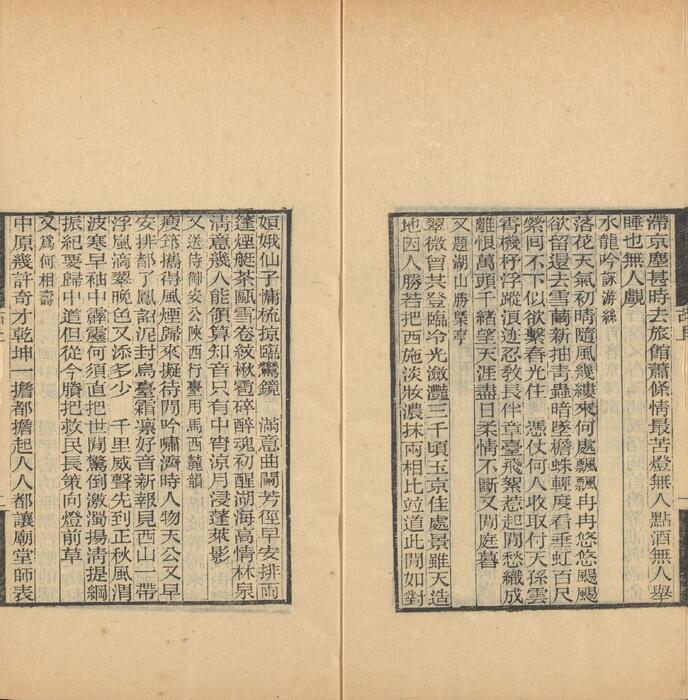 滯京塵甚時去旅館蕭條情最苦燈無人點酒無人舉
睡也無人覷
水龍吟詠游絲
落花天氣初晴隨風幾縷來何處飄飄冉冉悠悠颺颺
欲留還去雲繭新抽青蟲暗墜檐蛛輕度看垂虹百尺
縈回不下似欲繫春光住 憑仗何人收取付天孫雲
霄機杼浮蹤浪迹忍敎長伴章臺飛絮惹起閒愁織成
離恨萬頭千緒望天涯盡日柔情不斷又閒庭暮
又題湖山勝槩亭
翠微曾共登臨冷光瀲灩三千頃玉京佳處景雖天造
地因人勝若把西施淡妝濃抹兩相比竝道此閒如對
姮娥仙子慵梳掠臨鸞鏡 滿意曲闌芳徑早安排雨
篷煙艇茶甌雪卷紋楸雹碎醉魂初醒湖海高情林泉
淸意幾人能領算知音只有中宵涼月浸蓬萊影
又送侍御安公陝西行臺用馬西麓韻
瘦筇攜得風煙歸來擬待閒吟嘯濟時人物天公又早
安排都了鳳詔泥封烏臺霜凜好音新報見西山一帶
浮嵐滴翠晩色又添多少 千里威聲先到正秋風渭
波寒早袖中霹靂何須直把世閒驚倒激濁揚淸提綱
振紀要歸中道但從今賸把救民長策向燈前草
又爲何相壽
中原幾許奇才乾坤一擔都擔起人人都讓廟堂師表